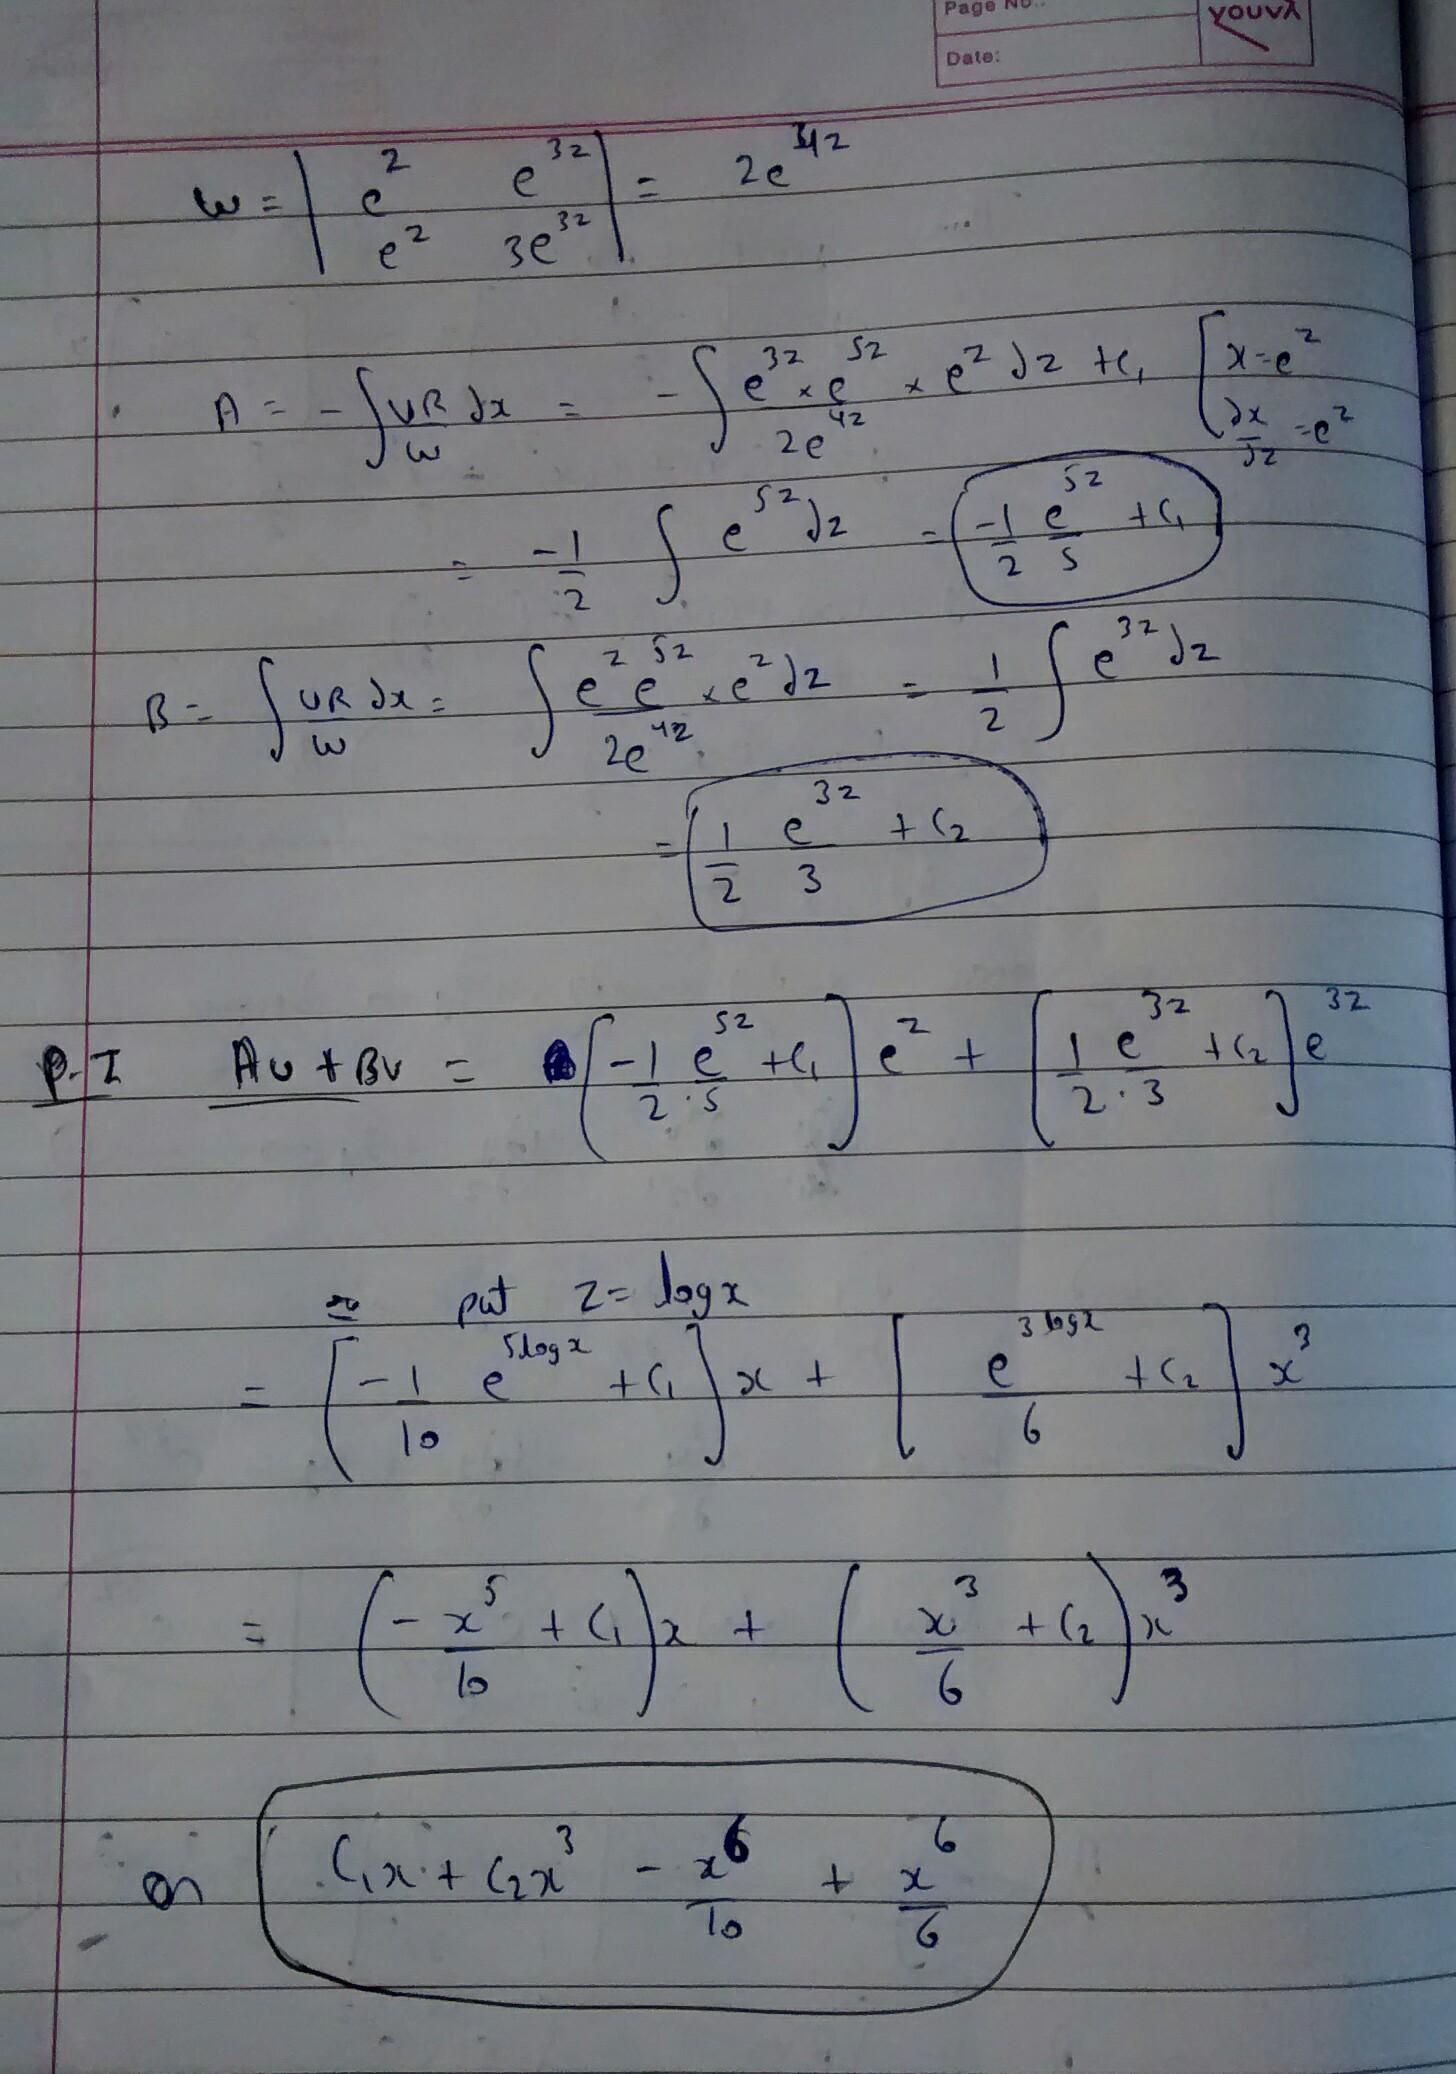 Page No.:
youva
Date:
W = | e^z e^{3z} | = 2e^{4z}
| e^z 3e^{3z} |
A = - ∫ VR/W dx = - ∫ (e^{3z} × e^{5z})/(2e^{4z}) × e^z dz + C₁ [ x = e^z
dx/dz = e^z
= -1/2 ∫ e^{5z} dz = -1/2 e^{5z}/5 + C₁
B = ∫ UR/W dx = ∫ (e^z e^{5z})/(2e^{4z}) × e^z dz = 1/2 ∫ e^{3z} dz
= 1/2 e^{3z}/3 + C₂
P.I Au + Bv = [ -1/2 · e^{5z}/5 + C₁ ] e^z + [ 1/2 · e^{3z}/3 + C₂ ] e^{3z}
put z = log x
= [ -1/10 e^{5 log x} + C₁ ] x + [ e^{3 log x}/6 + C₂ ] x^3
= ( - x^5/10 + C₁ ) x + ( x^3/6 + C₂ ) x^3
or C₁x + C₂x^3 - x^6/10 + x^6/6